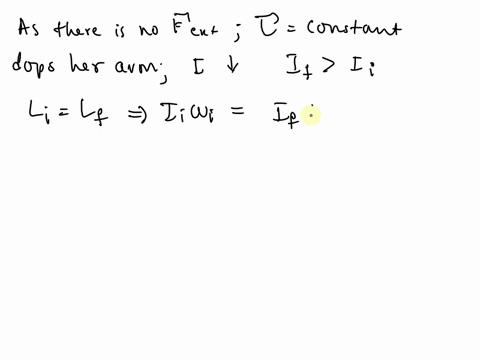 As there is no F⃗ext ; τ⃗ = constant
dops her arm; I ↓ If > Ii
Li = Lf ⇒ Iiωi = If